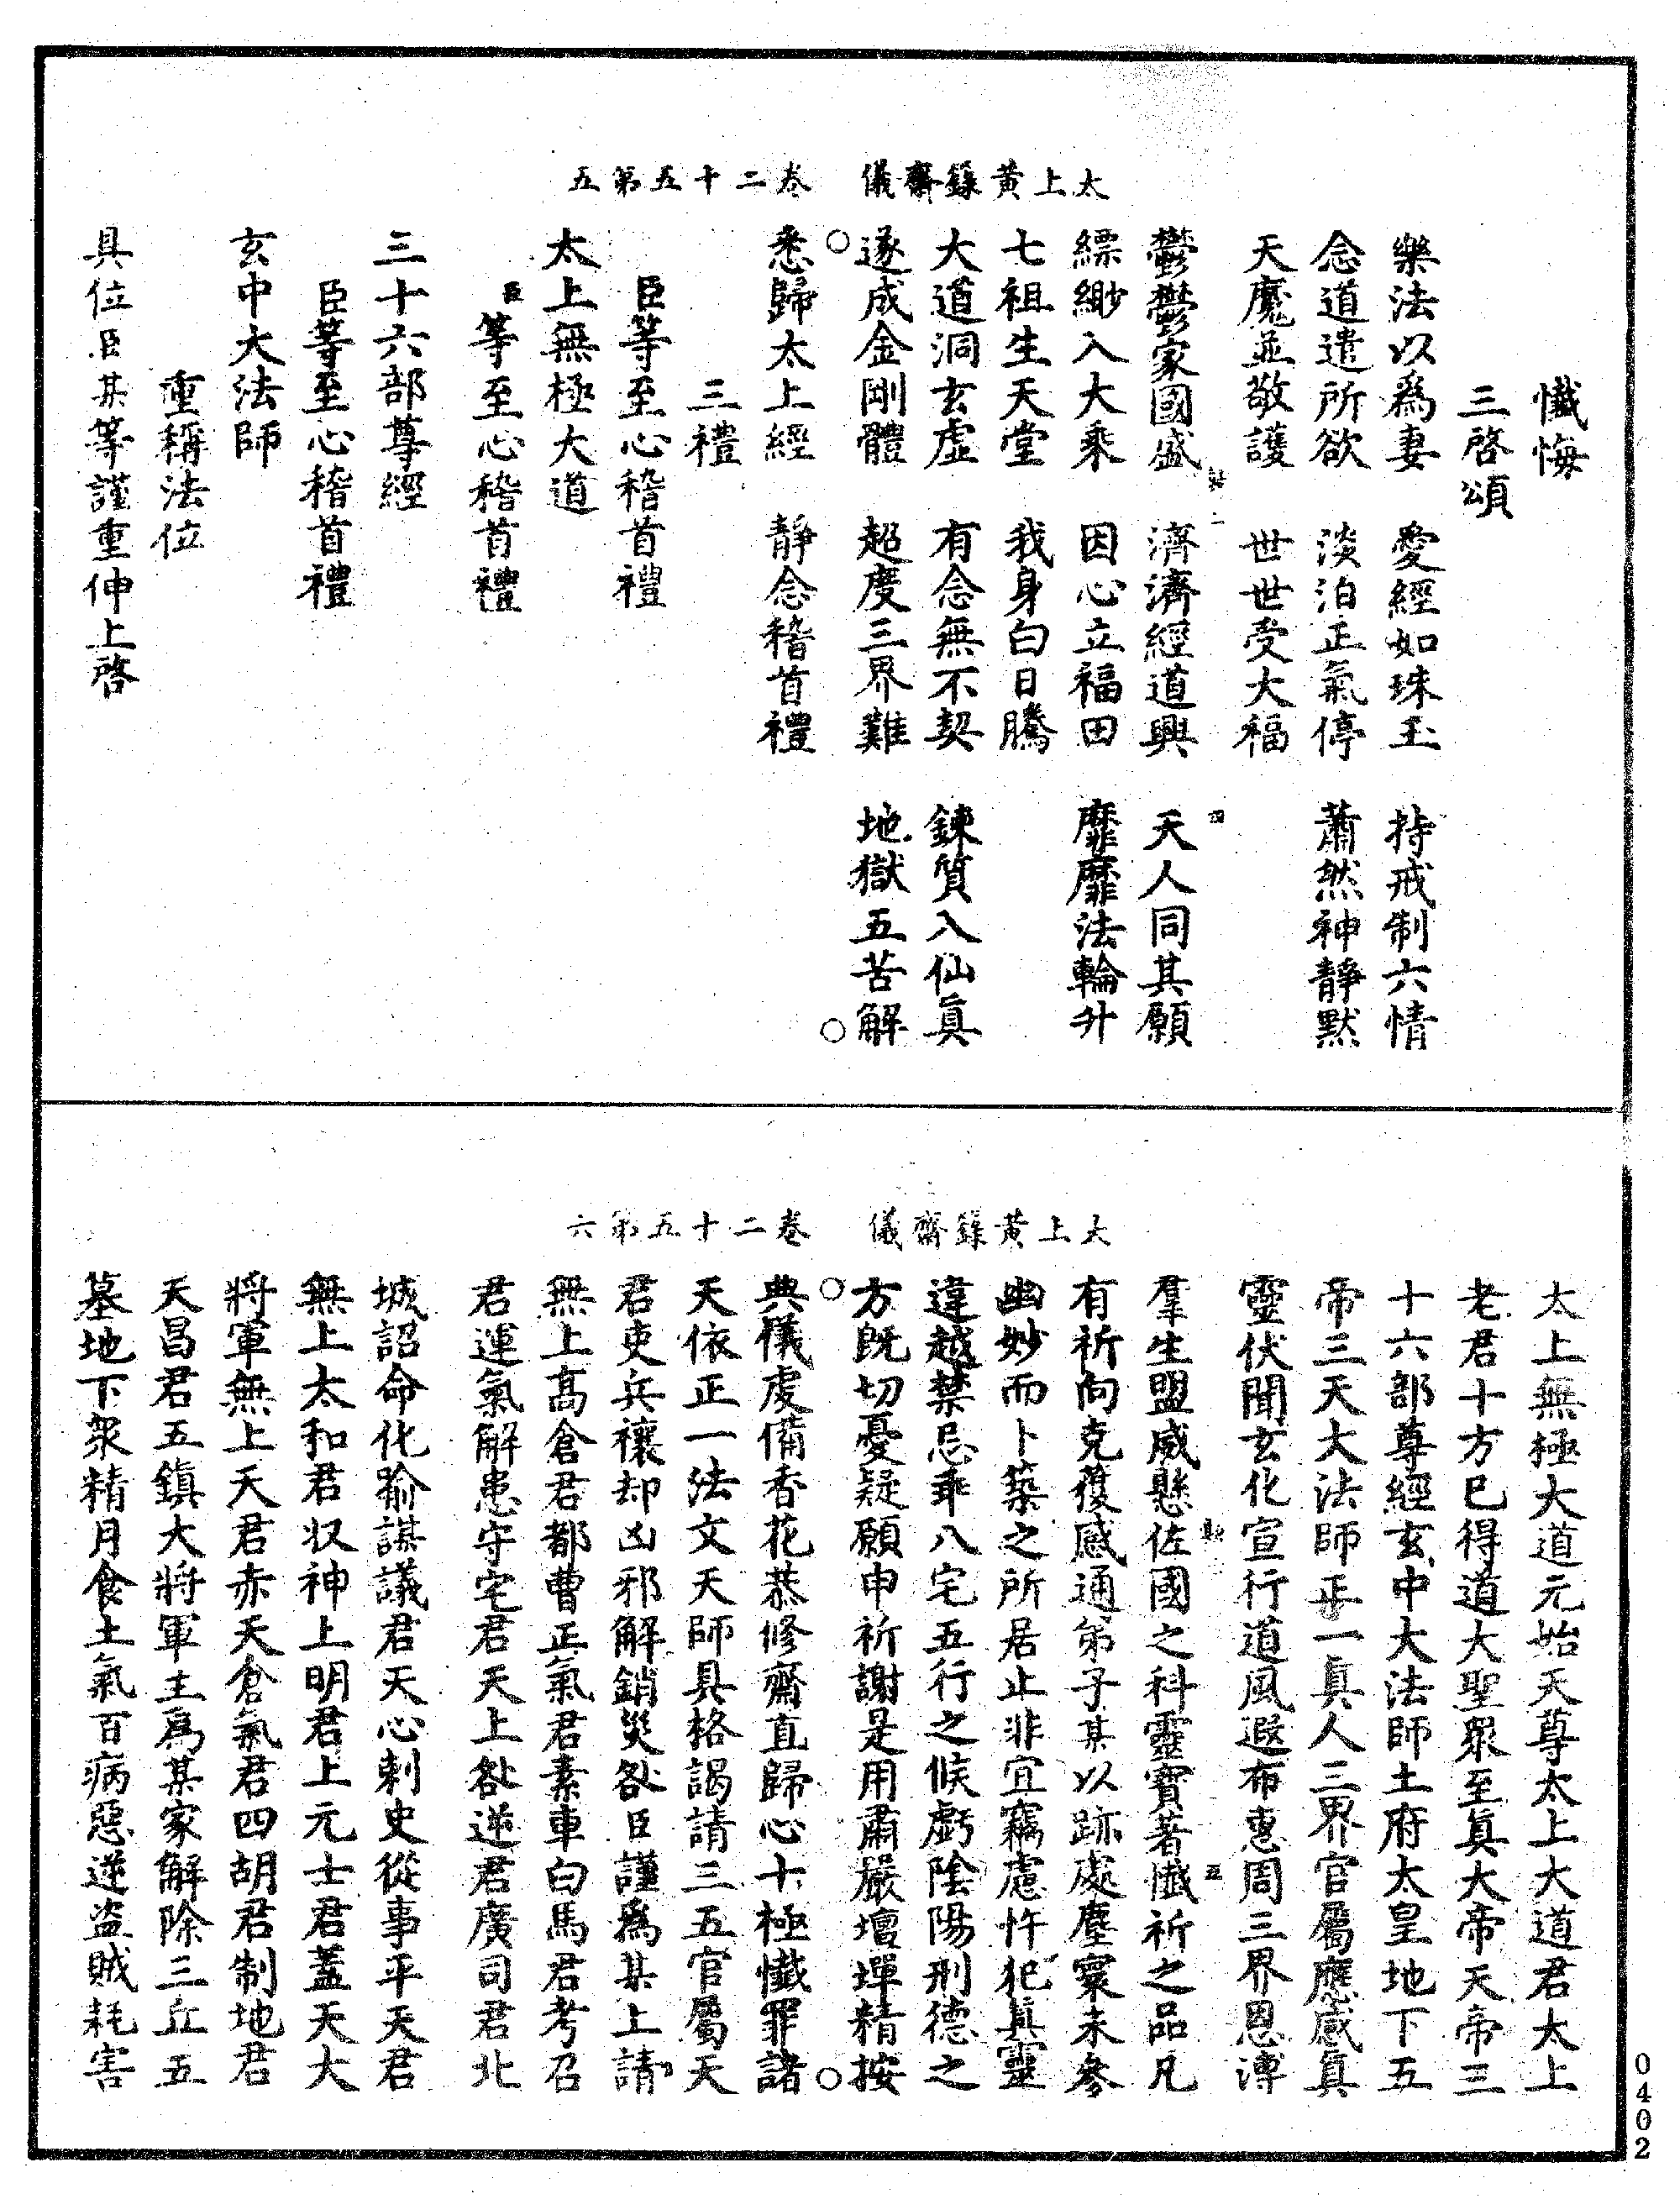 太上黃籙齋儀　卷二十五第五
懺悔
三啓頌
樂法以爲妻　愛經如珠玉　持戒制六情
念道遣所欲　淡泊正氣停　蕭然神靜默
天魔並敬護　世世受大福
鬱鬱家國盛　濟濟經道興　天人同其願
縹緲入大乘　因心立福田　靡靡法輪升
七祖生天堂　我身白日騰
大道洞玄虛　有念無不契　鍊質入仙眞
遂成金剛體　超度三界難　地獄五苦解
悉歸太上經　靜念稽首禮
三禮
臣等至心稽首禮
太上無極大道
臣等至心稽首禮
三十六部尊經
臣等至心稽首禮
玄中大法師
重稱法位
具位臣某等謹重伸上啓
太上黃籙齋儀　卷二十五第六
太上無極大道元始天尊太上大道君太上
老君十方已得道大聖眾至眞大帝天帝三
十六部尊經玄中大法師土府太皇地下五
帝三天大法師正一眞人三界官屬應感眞
靈伏聞玄化宣行道風遐布惠周三界恩溥
羣生盟威懸佐國之科靈寶著懺祈之品凡
有祈向克獲感通弟子某以跡處塵寰未參
幽妙而卜築之所居止非宜竊慮忤犯眞靈
違越禁忌乖八宅五行之候虧陰陽刑德之
方既切憂疑願申祈謝是用肅嚴壇墠精按
典儀虔備香花恭修齋直歸心十極懺罪諸
天依正一法文天師具格謁請三五官屬天
君吏兵禳却凶邪解銷災咎臣謹爲某上請
無上高倉君都曹正氣君素車白馬君考召
君運氣解患守宅君天上咎逆君廣司君北
城詔命化喻謀議君天心刺史從事平天君
無上太和君收神上明君上元士君蓋天大
將軍無上天君赤天倉氣君四胡君制地君
天昌君五鎮大將軍主爲某家解除三丘五
墓地下眾精月食土氣百病惡逆盜賊耗害
0402